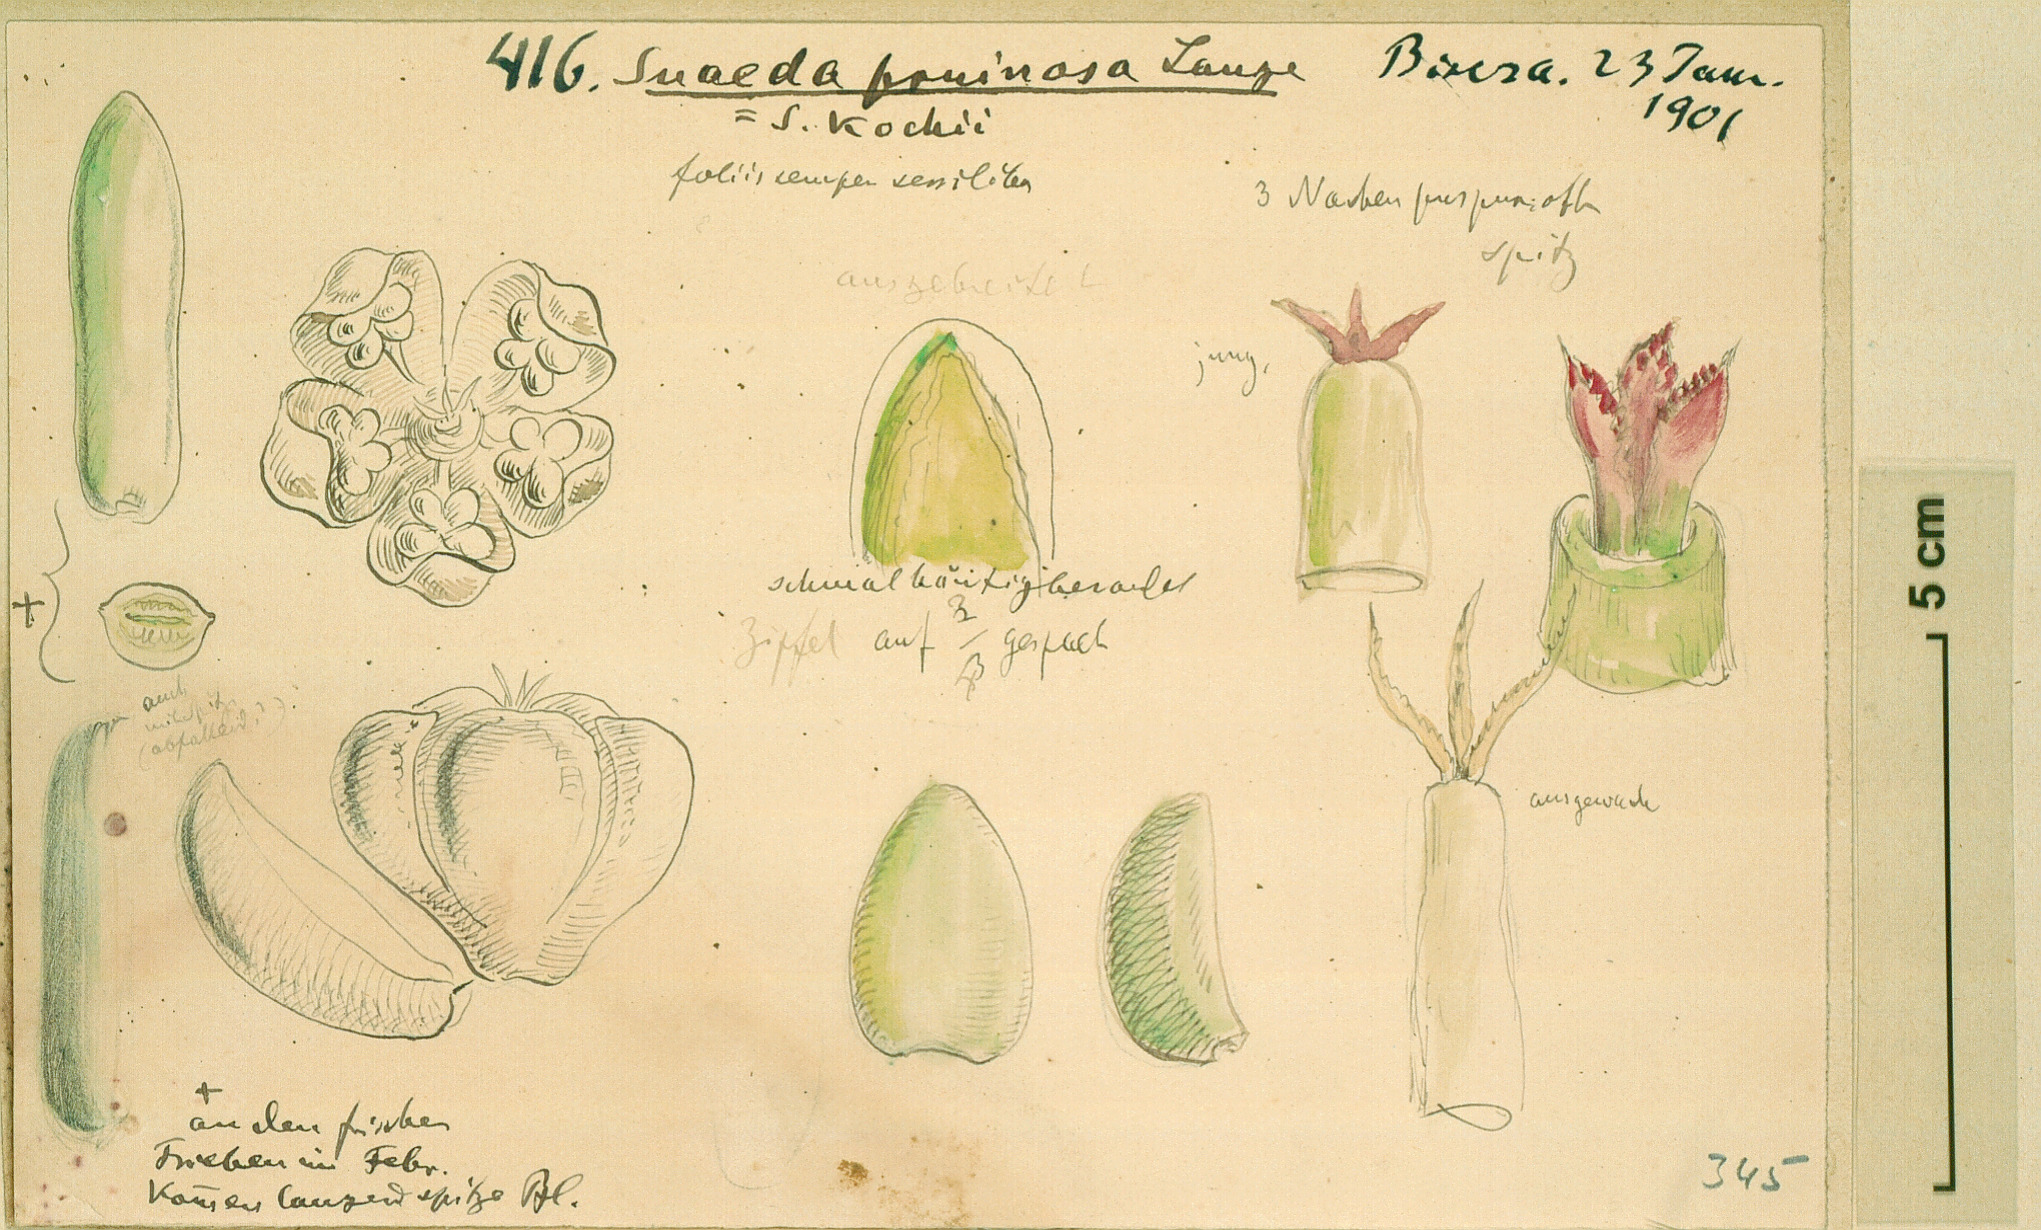 416. Suaeda pruinosa Lange Biscra. 23 Jan.
1901
= S. Kochii
foliis semper sessilibus
3 Narben purpur, oft
spitz
ausgebreitet
jung,
schmal häutig berandet
Zipfel auf gespalt
auch
(abfallend?)
ausgewach
+
+
an den frischen
Trieben im Febr.
kom̄en lang und spitze Bl.
345
5 cm